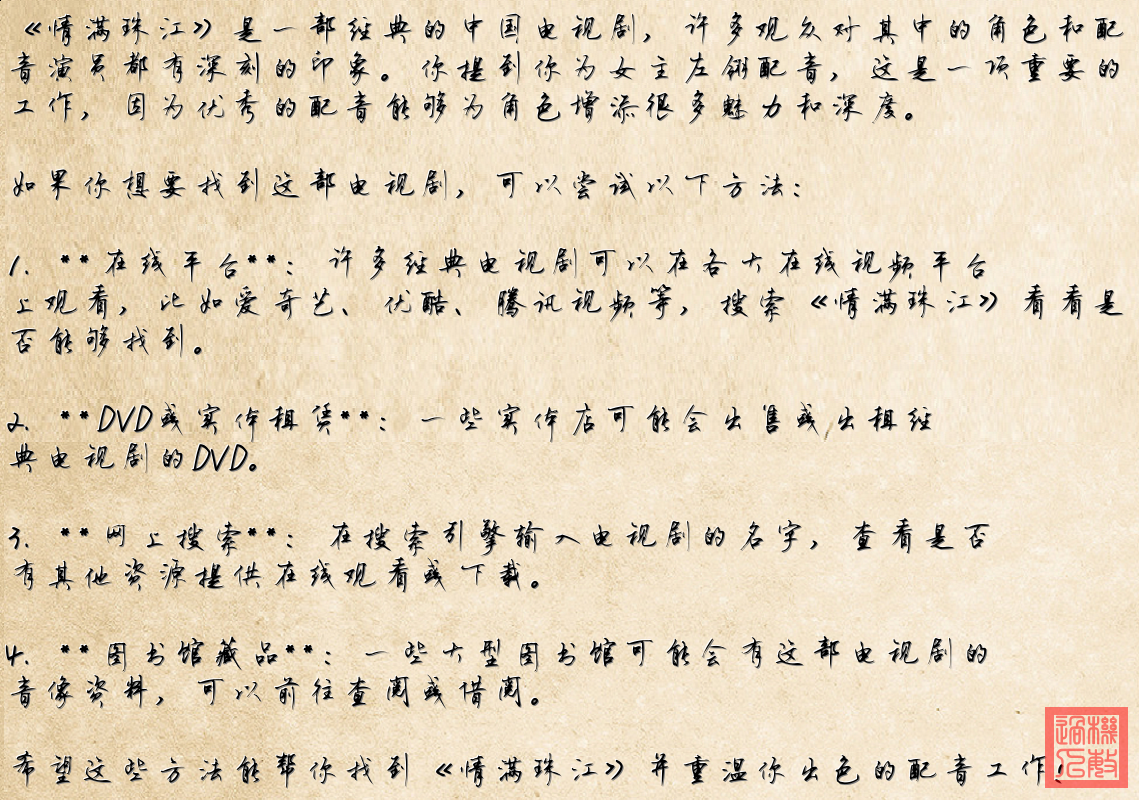 《情满珠江》是一部经典的中国电视剧，许多观众对其中的角色和配
音演员都有深刻的印象。你提到你为女主左翎配音，这是一项重要的
工作，因为优秀的配音能够为角色增添很多魅力和深度。
如果你想要找到这部电视剧，可以尝试以下方法：
1. **在线平台**：许多经典电视剧可以在各大在线视频平台
上观看，比如爱奇艺、优酷、腾讯视频等，搜索《情满珠江》看看是
否能够找到。
2. **DVD或实体租赁**：一些实体店可能会出售或出租经
典电视剧的DVD。
3. **网上搜索**：在搜索引擎输入电视剧的名字，查看是否
有其他资源提供在线观看或下载。
4. **图书馆藏品**：一些大型图书馆可能会有这部电视剧的
音像资料，可以前往查阅或借阅。
希望这些方法能帮你找到《情满珠江》并重温你出色的配音工作！